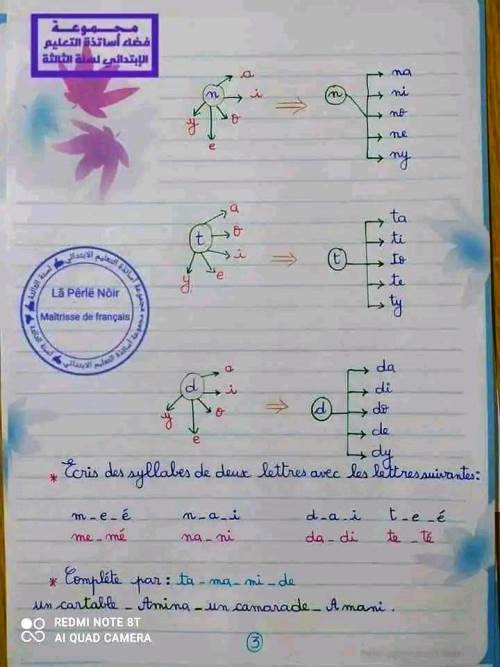 مجموعة
فضاء أساتذة التعليم
الإبتدائي لسنة الثالثة
n
a
i
o
e
y
⇒
n
na
ni
no
ne
ny
t
a
o
i
e
y
⇒
t
ta
ti
to
te
ty
Lã Pêrlë Nöir
Maîtrisse de français
d
a
i
o
e
y
⇒
d
da
di
do
de
dy
* Ecris des syllabes de deux lettres avec les lettres suivantes:
m_e_é n_a_i d_a_i t_e_é
me_mé na_ni da_di te_té
* Complète par: ta_ma_mi_de
un cartable_Amina_un camarade_Amani.
3
REDMI NOTE 8T
AI QUAD CAMERA